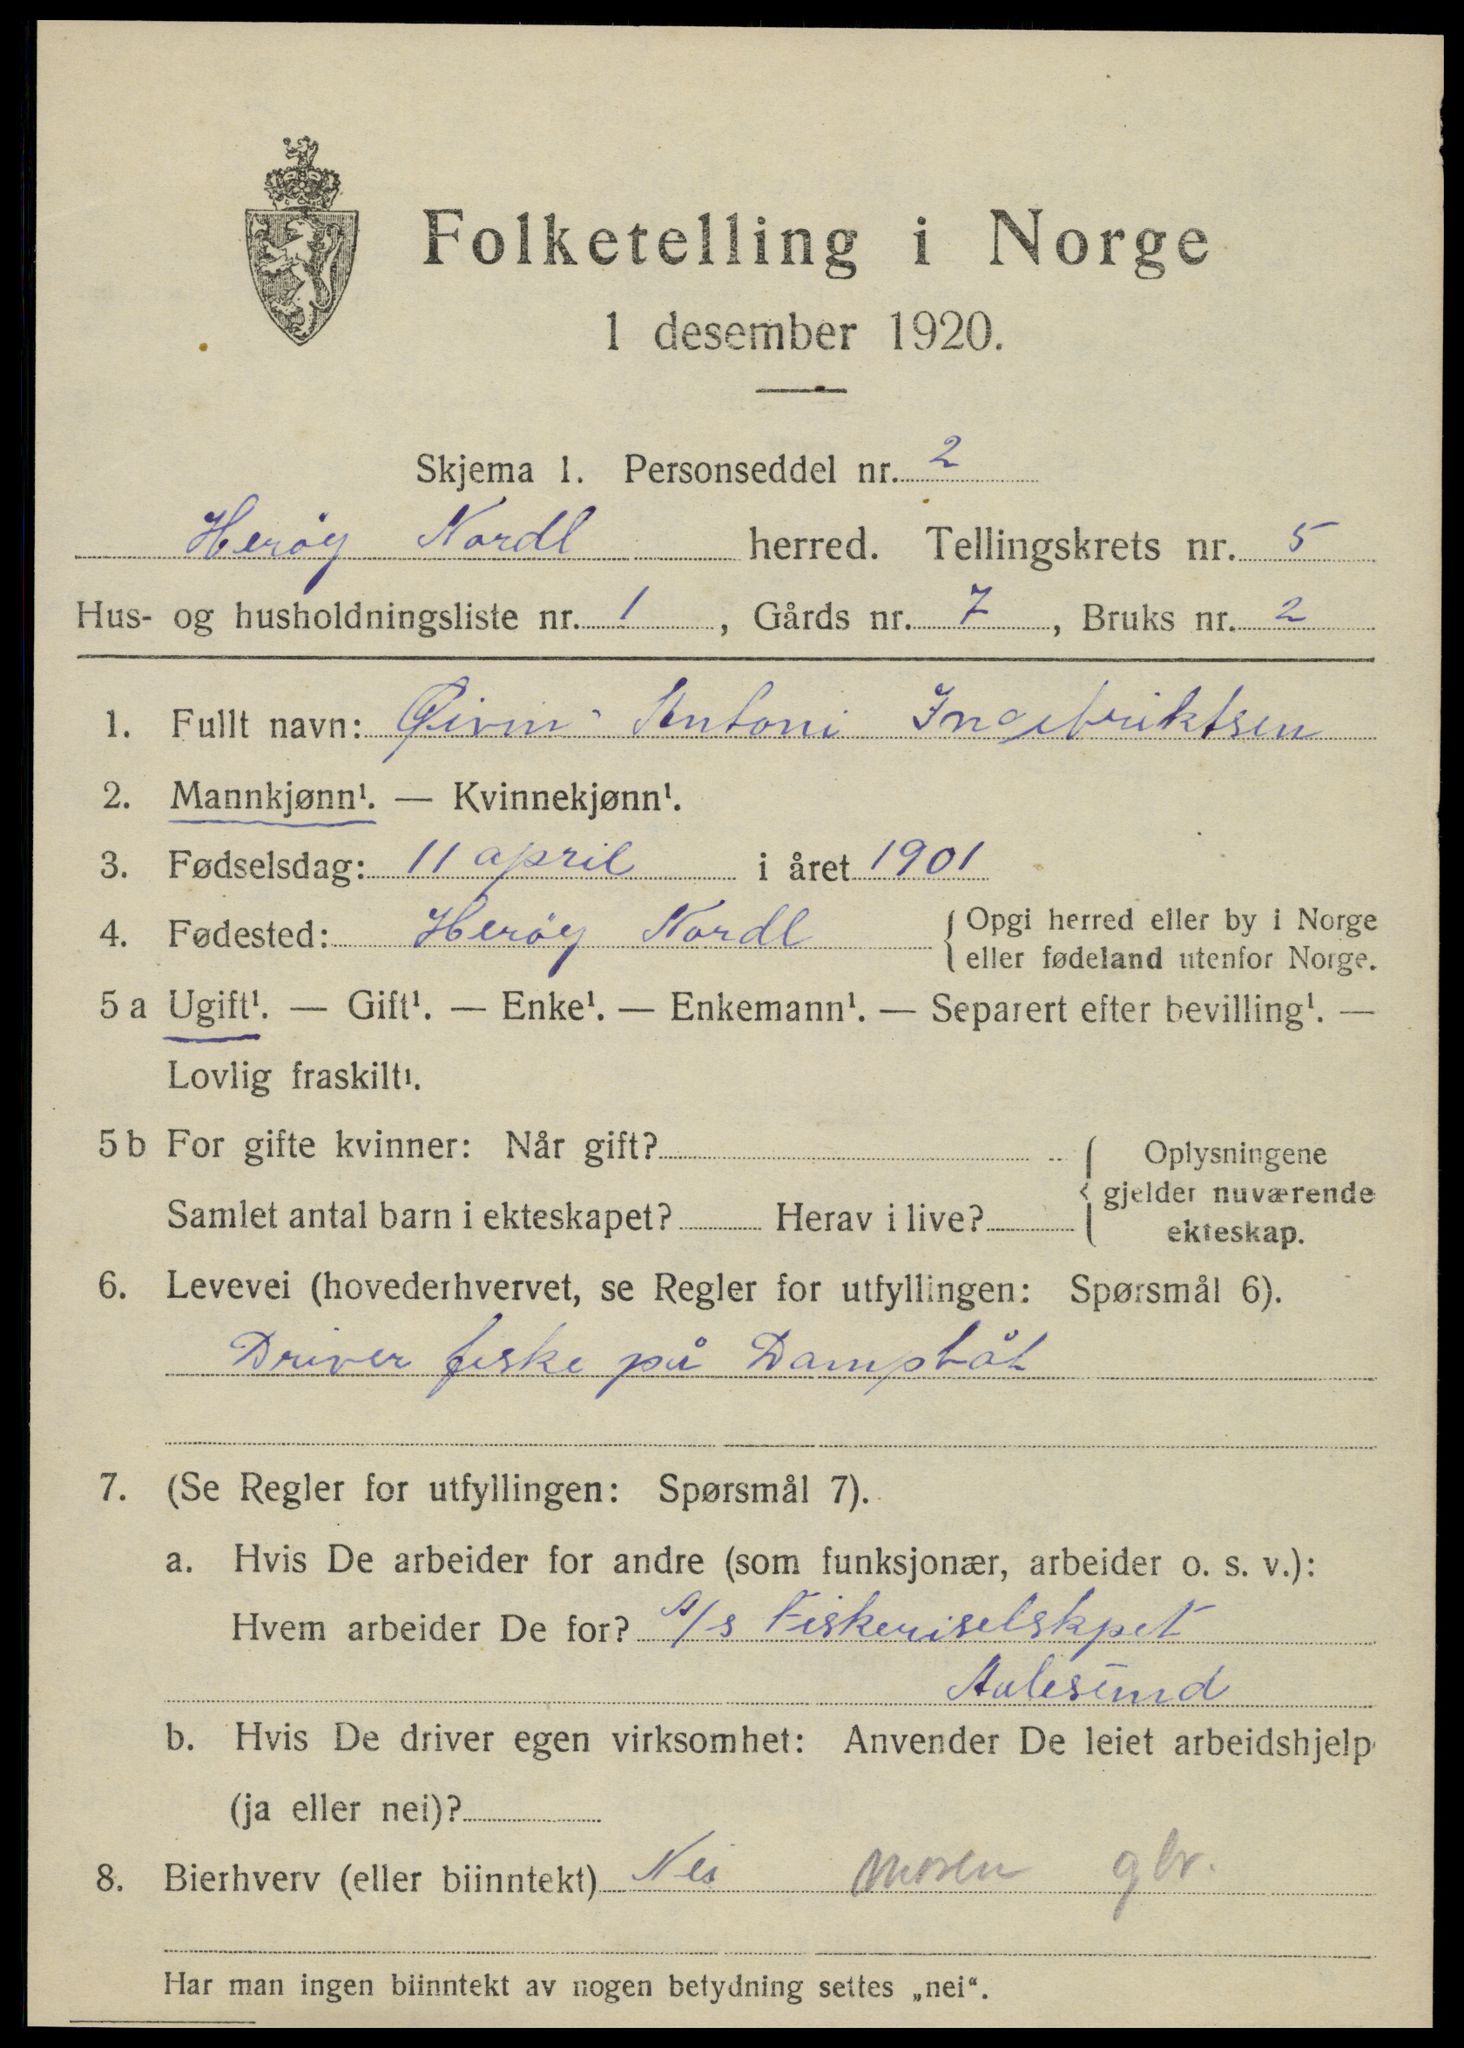 Folketelling i Norge
1 desember 1920.
Skjema 1. Personseddel nr. 2
Herøy Nordl herred. Tellingskrets nr. 5
Hus- og husholdningsliste nr. 1, Gårds nr. 7, Bruks nr. 2
1. Fullt navn: Øivin Antoni Ingebriktsen
2. Mannkjønn¹. — Kvinnekjønn¹.
3. Fødselsdag: 11 april i året 1901
4. Fødested: Herøy Nordl { Opgi herred eller by i Norge
eller fødeland utenfor Norge.
5 a Ugift¹. — Gift¹. — Enke¹. — Enkemann¹. — Separert efter bevilling¹. —
Lovlig fraskilt¹.
5 b For gifte kvinner: Når gift? { Oplysningene
gjelder nuværende
Samlet antal barn i ekteskapet? Herav i live?
ekteskap.
6. Levevei (hovederhvervet, se Regler for utfyllingen: Spørsmål 6).
Driver feske på Dampbåt
7. (Se Regler for utfyllingen: Spørsmål 7).
a. Hvis De arbeider for andre (som funksjonær, arbeider o. s. v.):
Hvem arbeider De for? A/s Fiskeriselskpet
Aalesund
b. Hvis De driver egen virksomhet: Anvender De leiet arbeidshjelp
(ja eller nei)?
8. Bierhverv (eller biinntekt) Nei moren gbr.
Har man ingen biinntekt av nogen betydning settes „nei“.